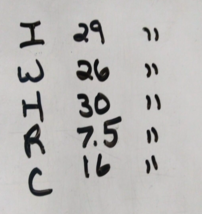 I 29 "
W 26 "
H 30 "
R 7.5 "
C 16 "